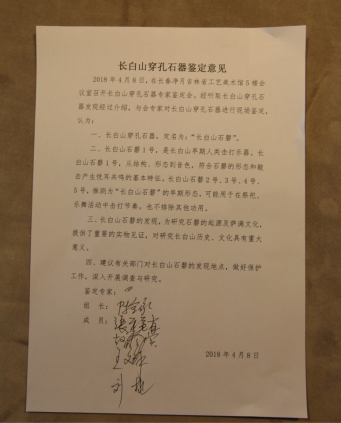 长白山穿孔石器鉴定意见
2018年4月8日，在长春净月吉林省工艺美术馆5楼会
议室召开长白山穿孔石器专家鉴定会。经听取长白山穿孔石
器发现经过介绍，与会专家对长白山穿孔石器进行现场鉴定，
认为：
一、长白山穿孔石器，定名为：“长白山石磬”。
二、长白山石磬1号，是长白山早期人类击打乐器。长
白山石磬1号，从结构、形态到音色，符合石磬的形态和敲
击产生悦耳共鸣的基本特征。长白山石磬2号、3号、4号、
5号，推测为“长白山石磬”的早期形态，可能用于在祭祀、
乐舞活动中击打节奏，也不排除其他功用。
三、长白山石磬的发现，为研究石磬的起源及萨满文化，
提供了重要的实物见证，对研究长白山历史、文化具有重大
意义。
四、建议有关部门对长白山石磬的发现地点，做好保护
工作，深入开展调查与研究。
鉴定专家：
组 长：
成 员：
王
刘
2018年4月8日